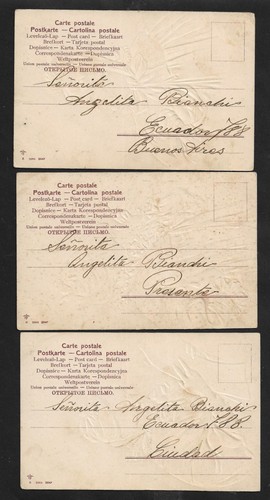 Carte postale
Postkarte — Cartolina postale
Levelezö-Lap — Post card — Briefkaart
Brefkort — Tarjeta postal
Dopisnice — Karta Korespondencyjna
Correspondenzkarte — Brevkort
Weltpostverein
Union postale universelle — Unione postale universale
ОТКРЫТОЕ ПИСЬМО.
Señorita
Angelita Bianchi
Ecuador 788
Buenos Aires
Carte postale
Postkarte — Cartolina postale
Levelezö-Lap — Post card — Briefkaart
Brefkort — Tarjeta postal
Dopisnice — Karta Korespondencyjna
Correspondenzkarte — Brevkort
Weltpostverein
Union postale universelle — Unione postale universale
ОТКРЫТОЕ ПИСЬМО.
Señorita
Angelita Bianchi
Presente
Carte postale
Postkarte — Cartolina postale
Levelezö-Lap — Post card — Briefkaart
Brefkort — Tarjeta postal
Dopisnice — Karta Korespondencyjna
Correspondenzkarte — Brevkort
Weltpostverein
Union postale universelle — Unione postale universale
ОТКРЫТОЕ ПИСЬМО.
Señorita Angelita Bianchi
Ecuador 788
Ciudad